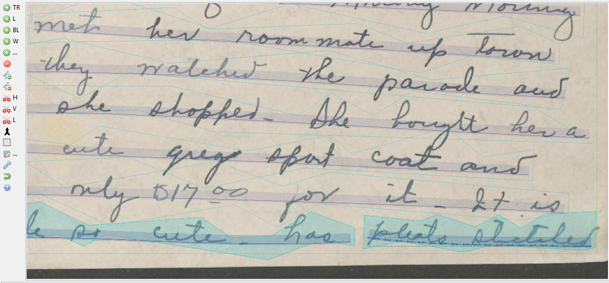 Morning
met her roommate up town
they watched the parade and
she shopped. She bought her a
cute grey sport coat and
only $17.00 for it - It is
so cute - has pleats stitched